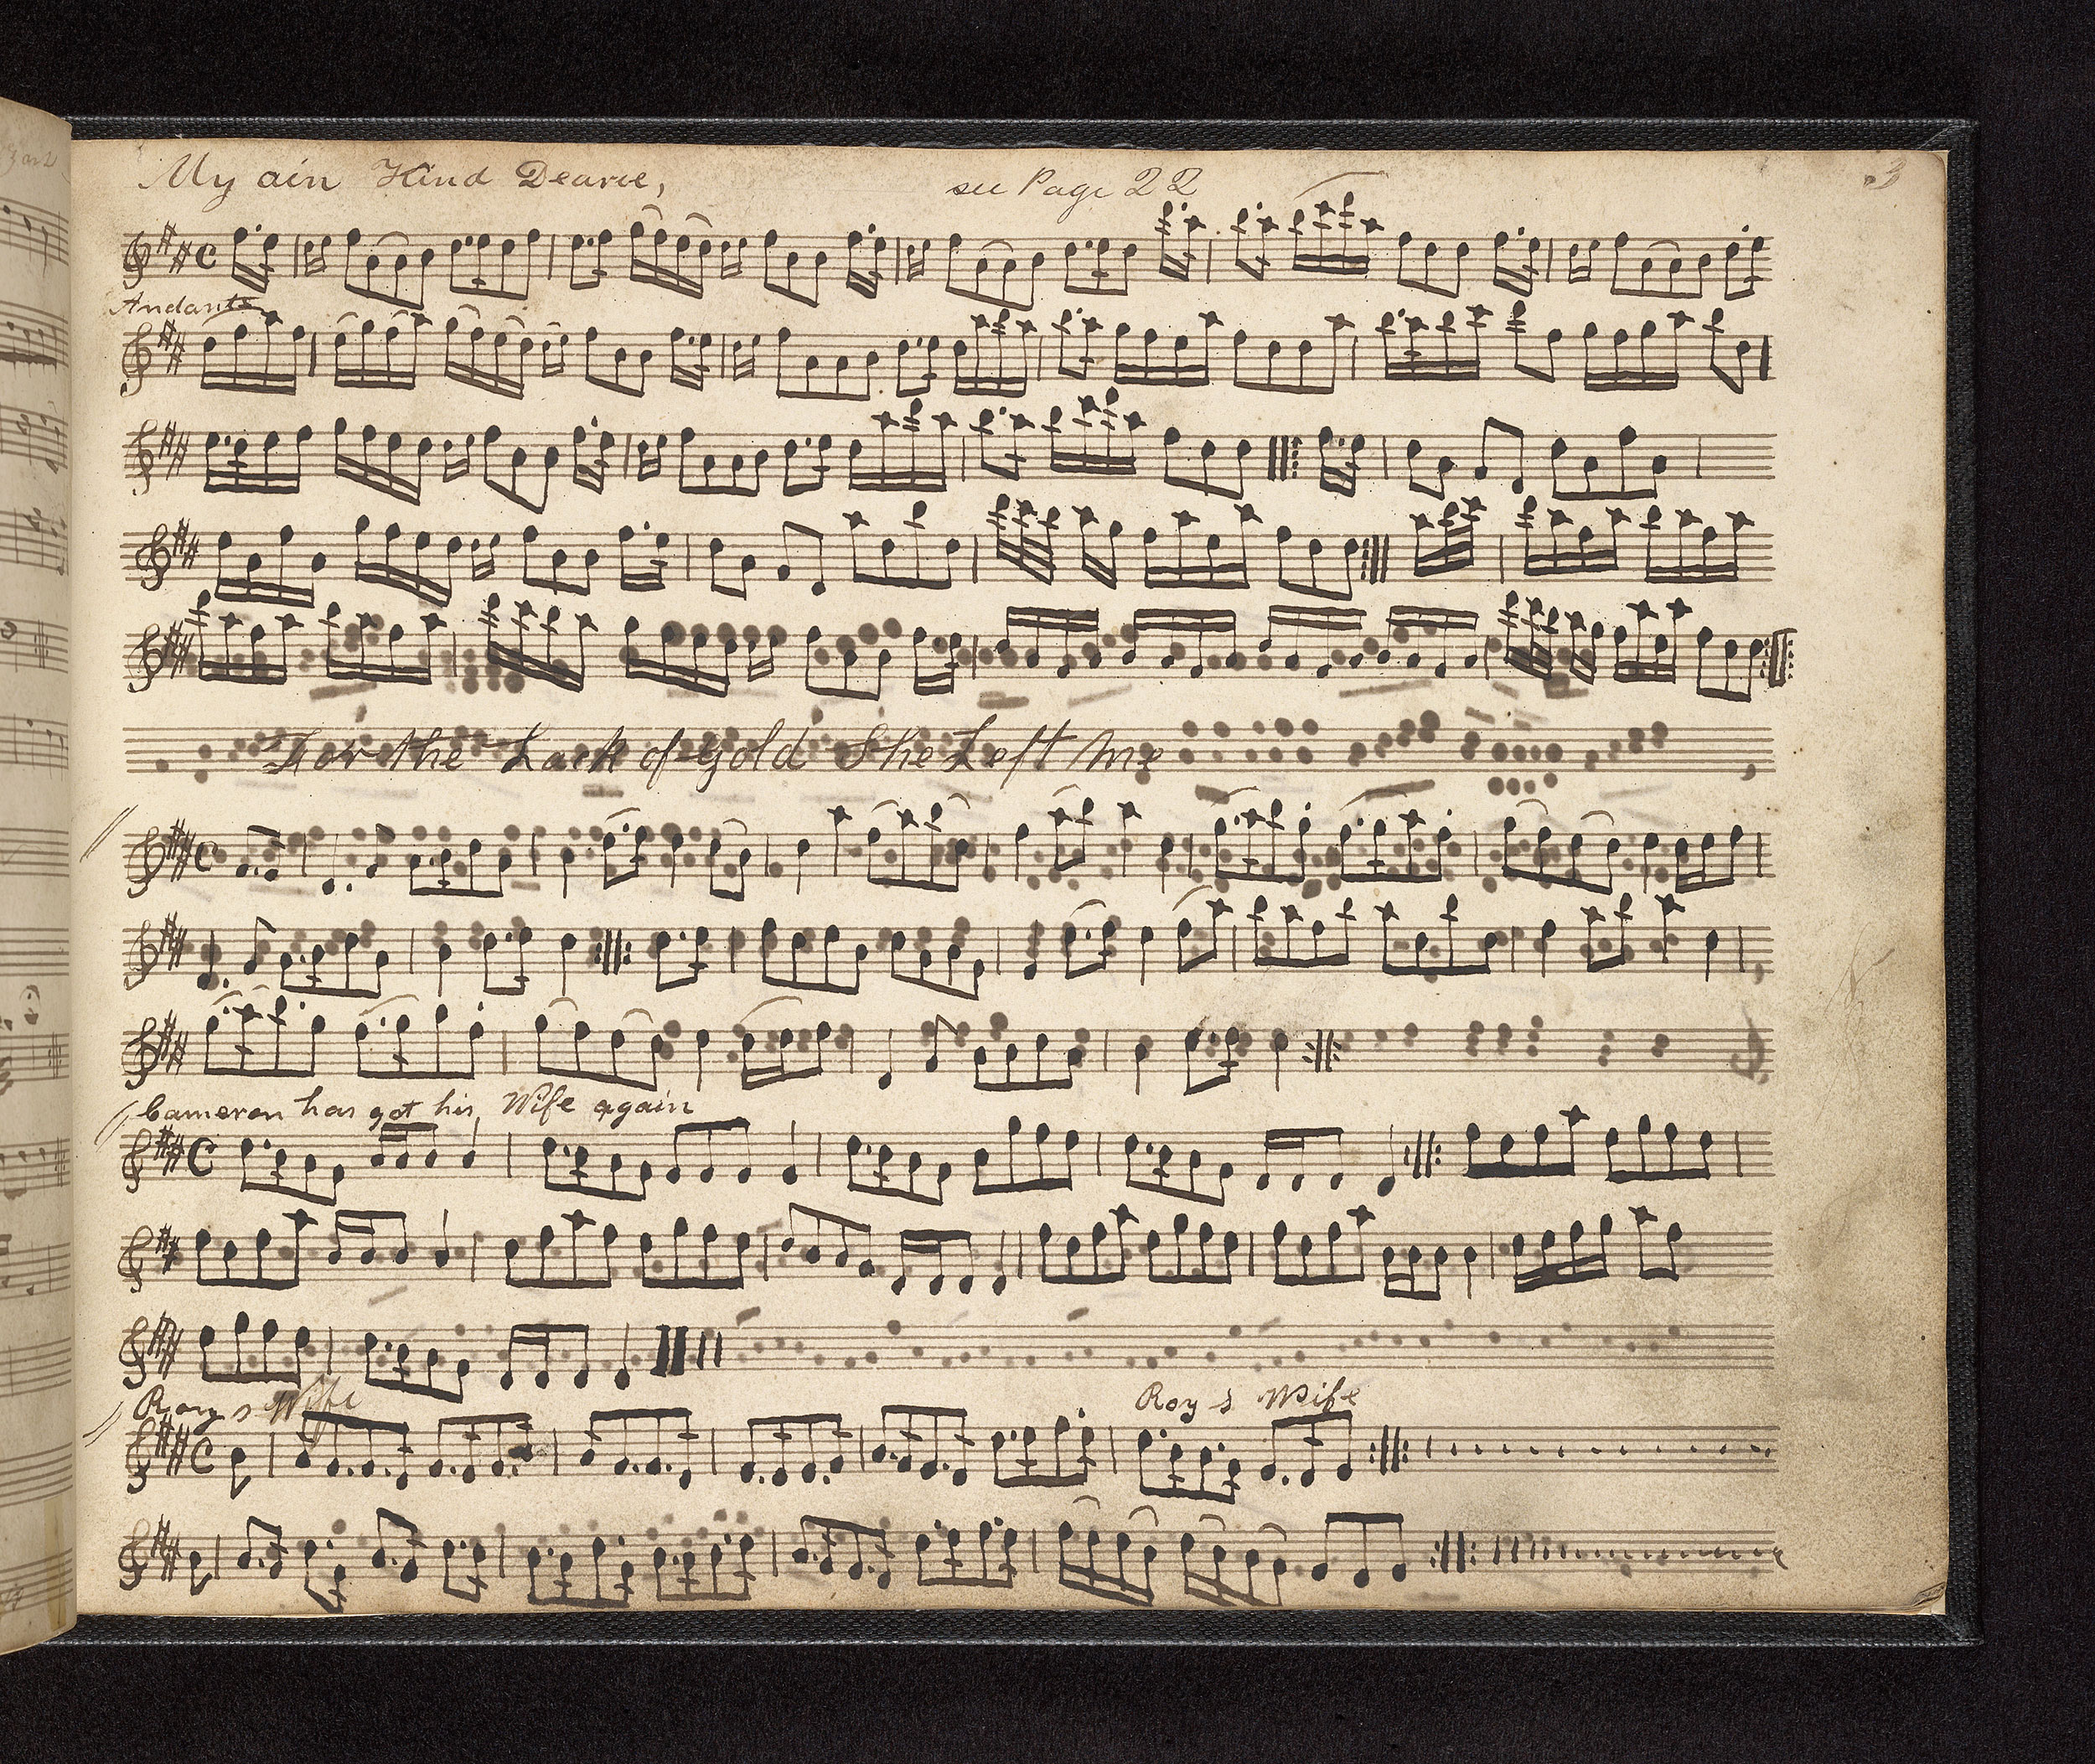 My ain Kind Dearie, see Page 22 3
Andante
For the Lack of Gold She Left Me
Cameron has got his Wife again
Roy s Wife Roy s Wife